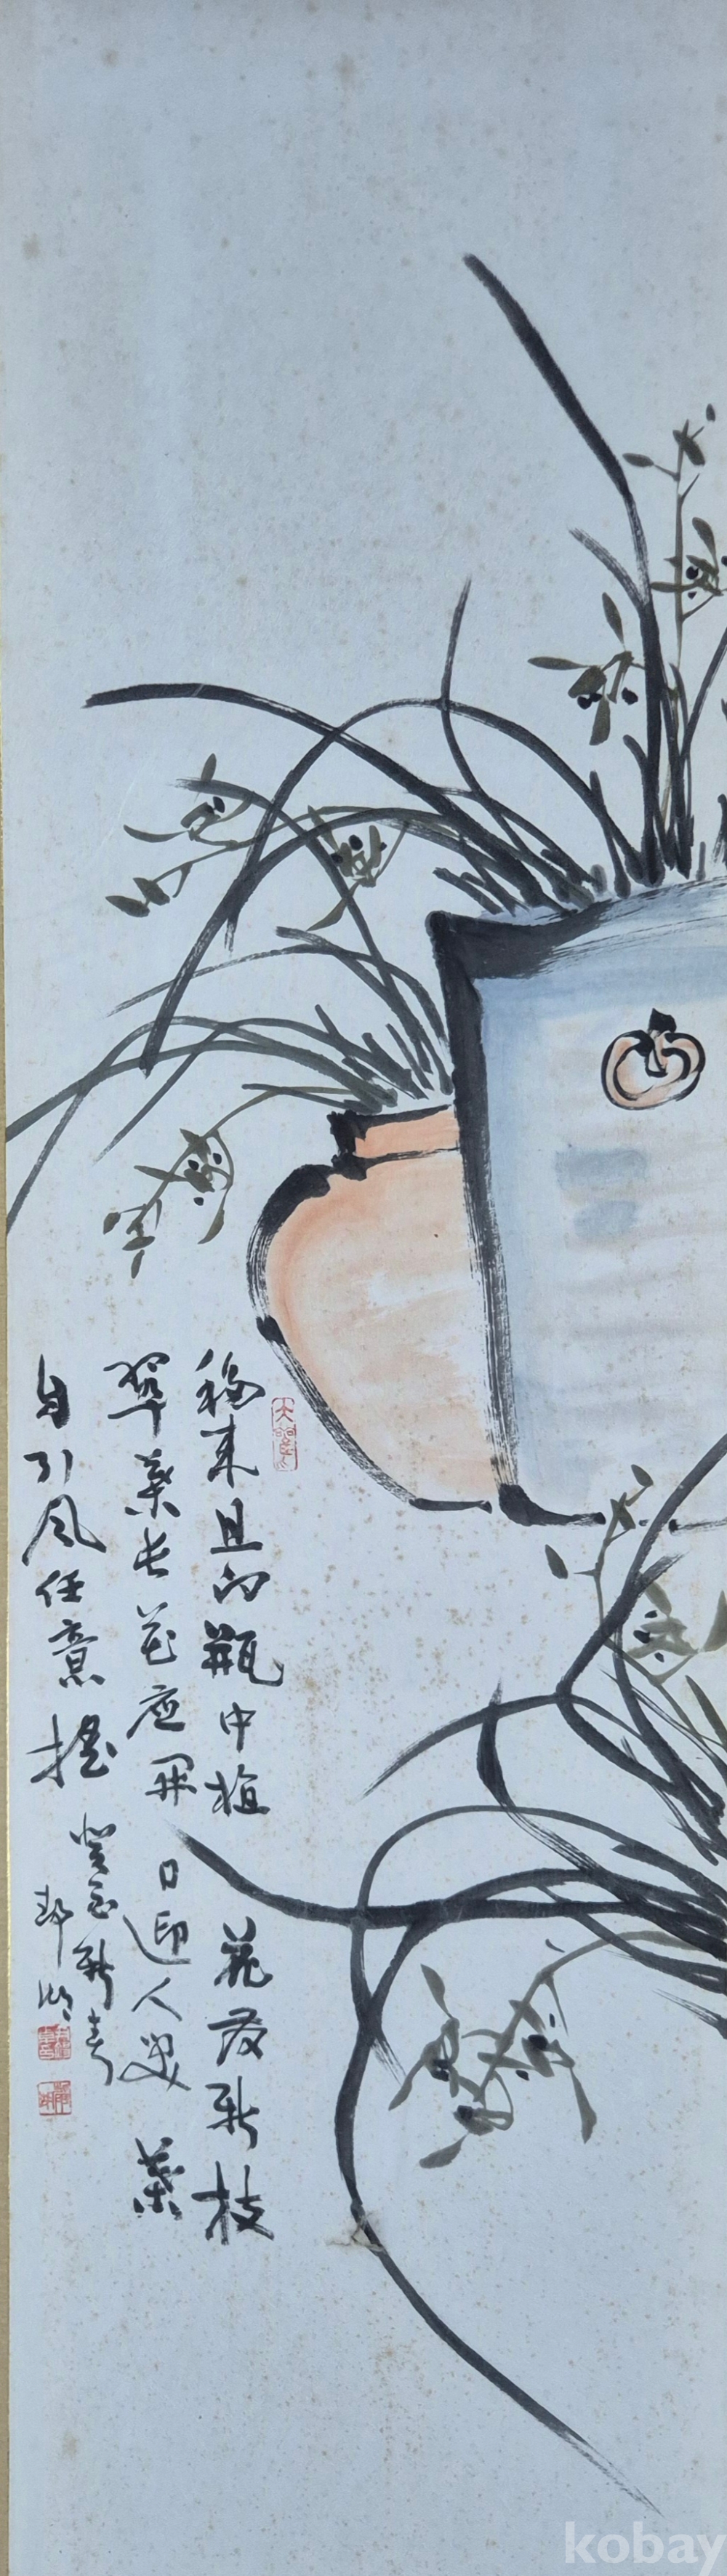 移來且向瓶中植 花發新枝
翠葉長花應開日迎人笑 葉
自引風任意搖
癸酉新春
kobay